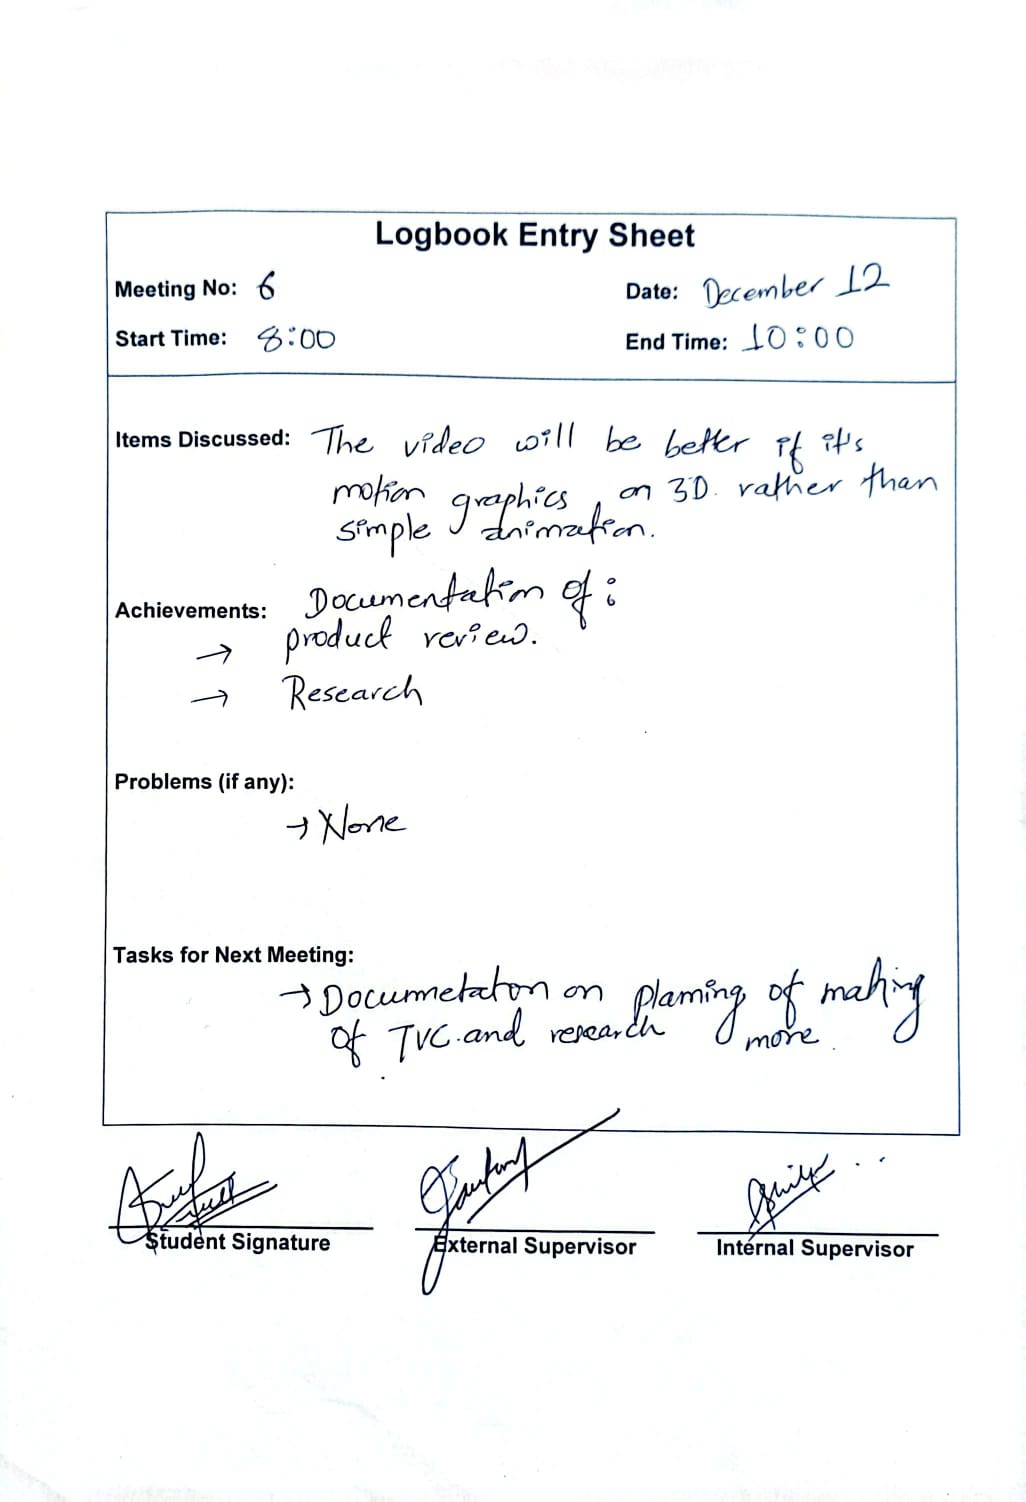 Logbook Entry Sheet
Meeting No: 6
Date: December 12
Start Time: 8:00
End Time: 10:00
Items Discussed: The video will be better if it's
motion graphics, on 3D. rather than
simple animation.
Achievements: Documentation of:
→ product review.
→ Research
Problems (if any):
→ None
Tasks for Next Meeting:
→ Documetation on planning of making
of TVC and research more.
Student Signature
External Supervisor
Internal Supervisor